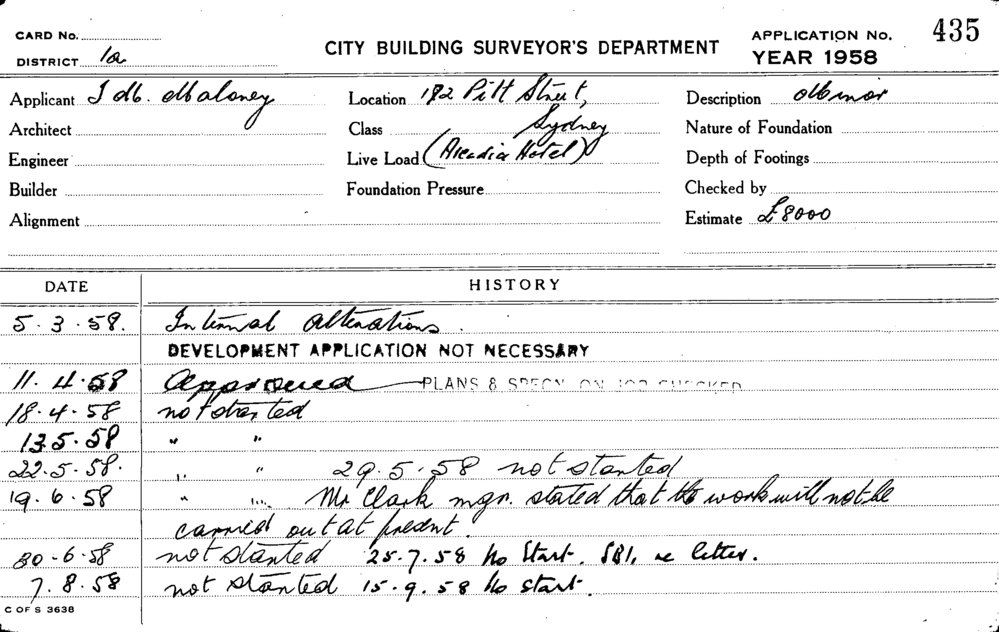 CARD No.
CITY BUILDING SURVEYOR'S DEPARTMENT
APPLICATION No. 435
DISTRICT 1a
YEAR 1958
Applicant J M. Maloney
Location 182 Pitt Street,
Description Minor
Architect
Class Sydney
Nature of Foundation
Engineer
Live Load (Arcadia Hotel)
Depth of Footings
Builder
Foundation Pressure
Checked by
Alignment
Estimate £8000
DATE HISTORY
5.3.58. Internal Alterations.
DEVELOPMENT APPLICATION NOT NECESSARY
11.4.58 Approved PLANS & SPECN ON JOB CHECKED
18.4.58 not started
13.5.58 " "
22.5.58. " " 29.5.58 not started
19.6.58 " " Mr Clark mgr. stated that the work will not be
carried out at present.
30.6.58 not started 25.7.58 No Start. SBI, re letter.
7.8.58 not started 15.9.58 No start.
C OF S 3638